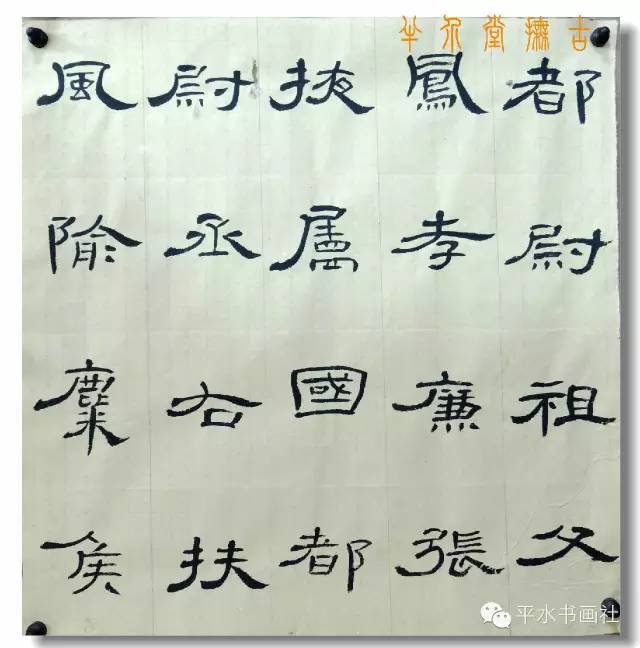 半尒堂古
都尉祖父
鳳孝廉張
掖屬國都
尉丞右扶
風隃麋侯
平水书画社